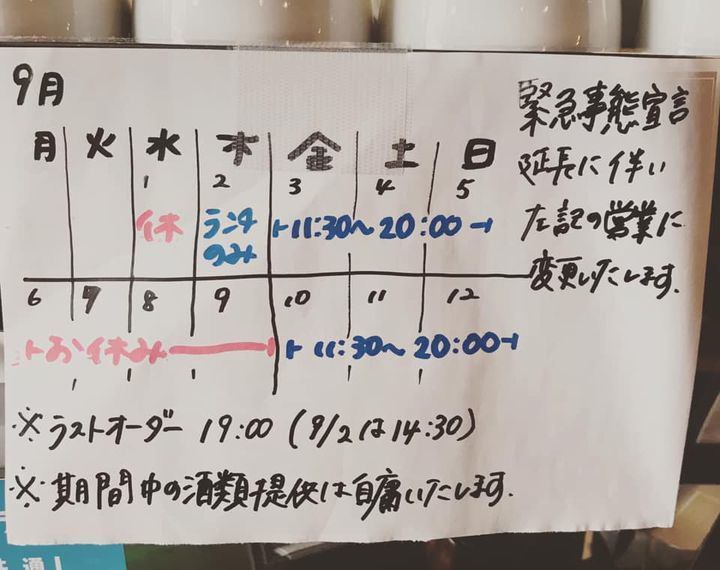 9月
月 火 水 木 金 土 日
1 2 3 4 5
休 ランチのみ 11:30〜20:00
6 7 8 9 10 11 12
お休み 11:30〜20:00
※ラストオーダー 19:00 (9/2は14:30)
※期間中の酒類提供は自粛いたします.
緊急事態宣言
延長に伴い
左記の営業に
変更いたします.